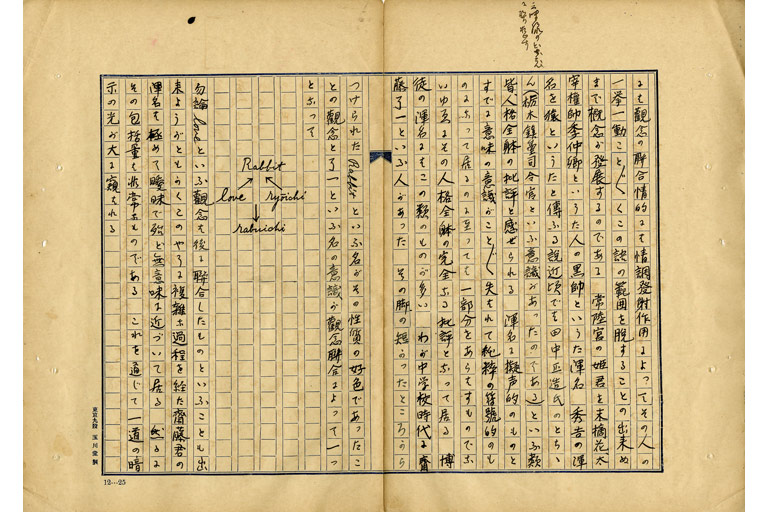 觀念の聯合情的な情調發射作用によつてその人の
一擧一動こと〴〵くこの訣の範囲を脱することの出來ぬ
まで概念が發展するのである 常陸宮の姫君を末摘花太
宰權帥季仲卿といふた人の黒帥といふた渾名 秀吉の渾
名を猿といふたと傳ふる説近頃でも田中正造氏のとちち
ん(栃木鎮臺司令官といふ意識があつたのである)といふ類
皆人格全躰の批評と感ぜられる 渾名も擬声的のものと
すでに意味の意識がこと〴〵く失はれて純粋の符號的のも
のになつて居るのに至つても一部分をあらはすものでな
いゆゑにその人格全躰の完全なる批評となつて居る 博
徒の渾名にもこの類のものが多い わが中学校時代に齋
藤了一といふ人があつた その脚の短かつたところから
つけられたRabbitといふ名がその性質の好色であつたこ
との觀念と了一といふ名の意識が觀念聯合によつて一つ
となつて
Rabbit
love ryōichi
rabuichi
勿論loveといふ觀念は後に聯合したものといふことも出
来ようがともかくこのやうに複雜な過程を経た齋藤君の
渾名も極めて曖昧で殆ど無意味に近づいて居る 然るに
その包括量は非常なものである これを通じて一道の暗
示の光が大に窺はれる
東京九段 玉川堂製
12—25